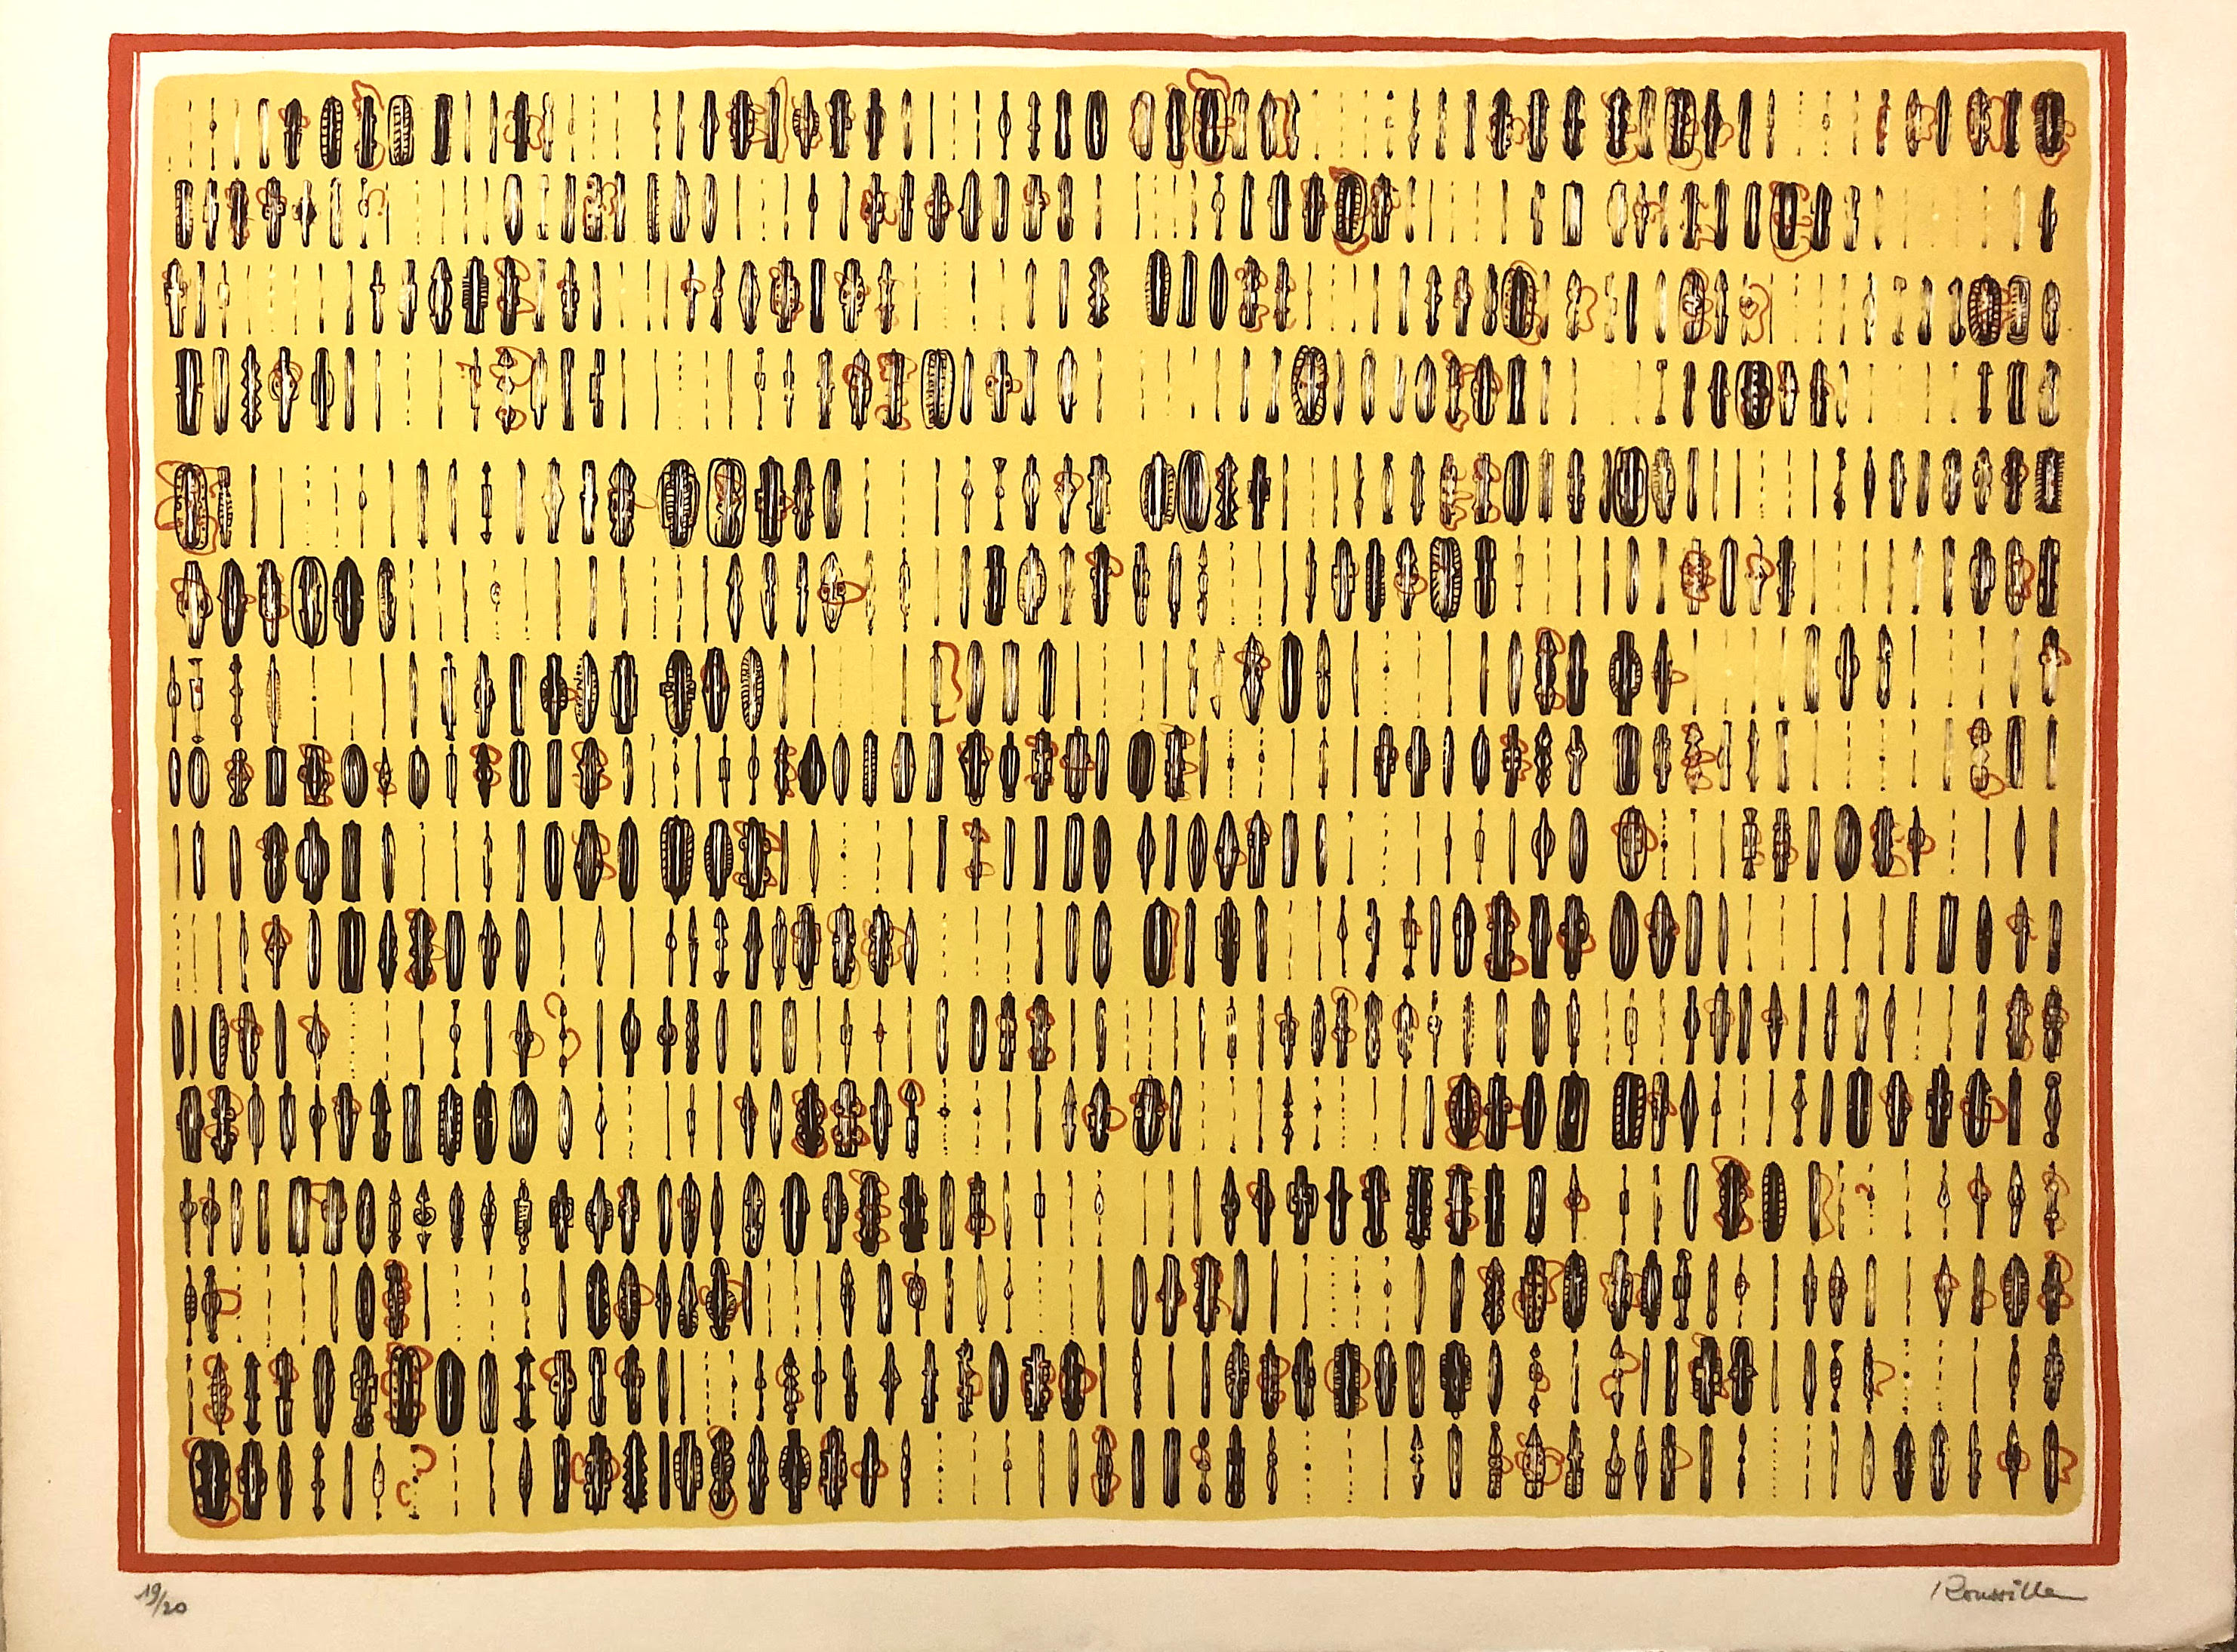 19/20
Roussille